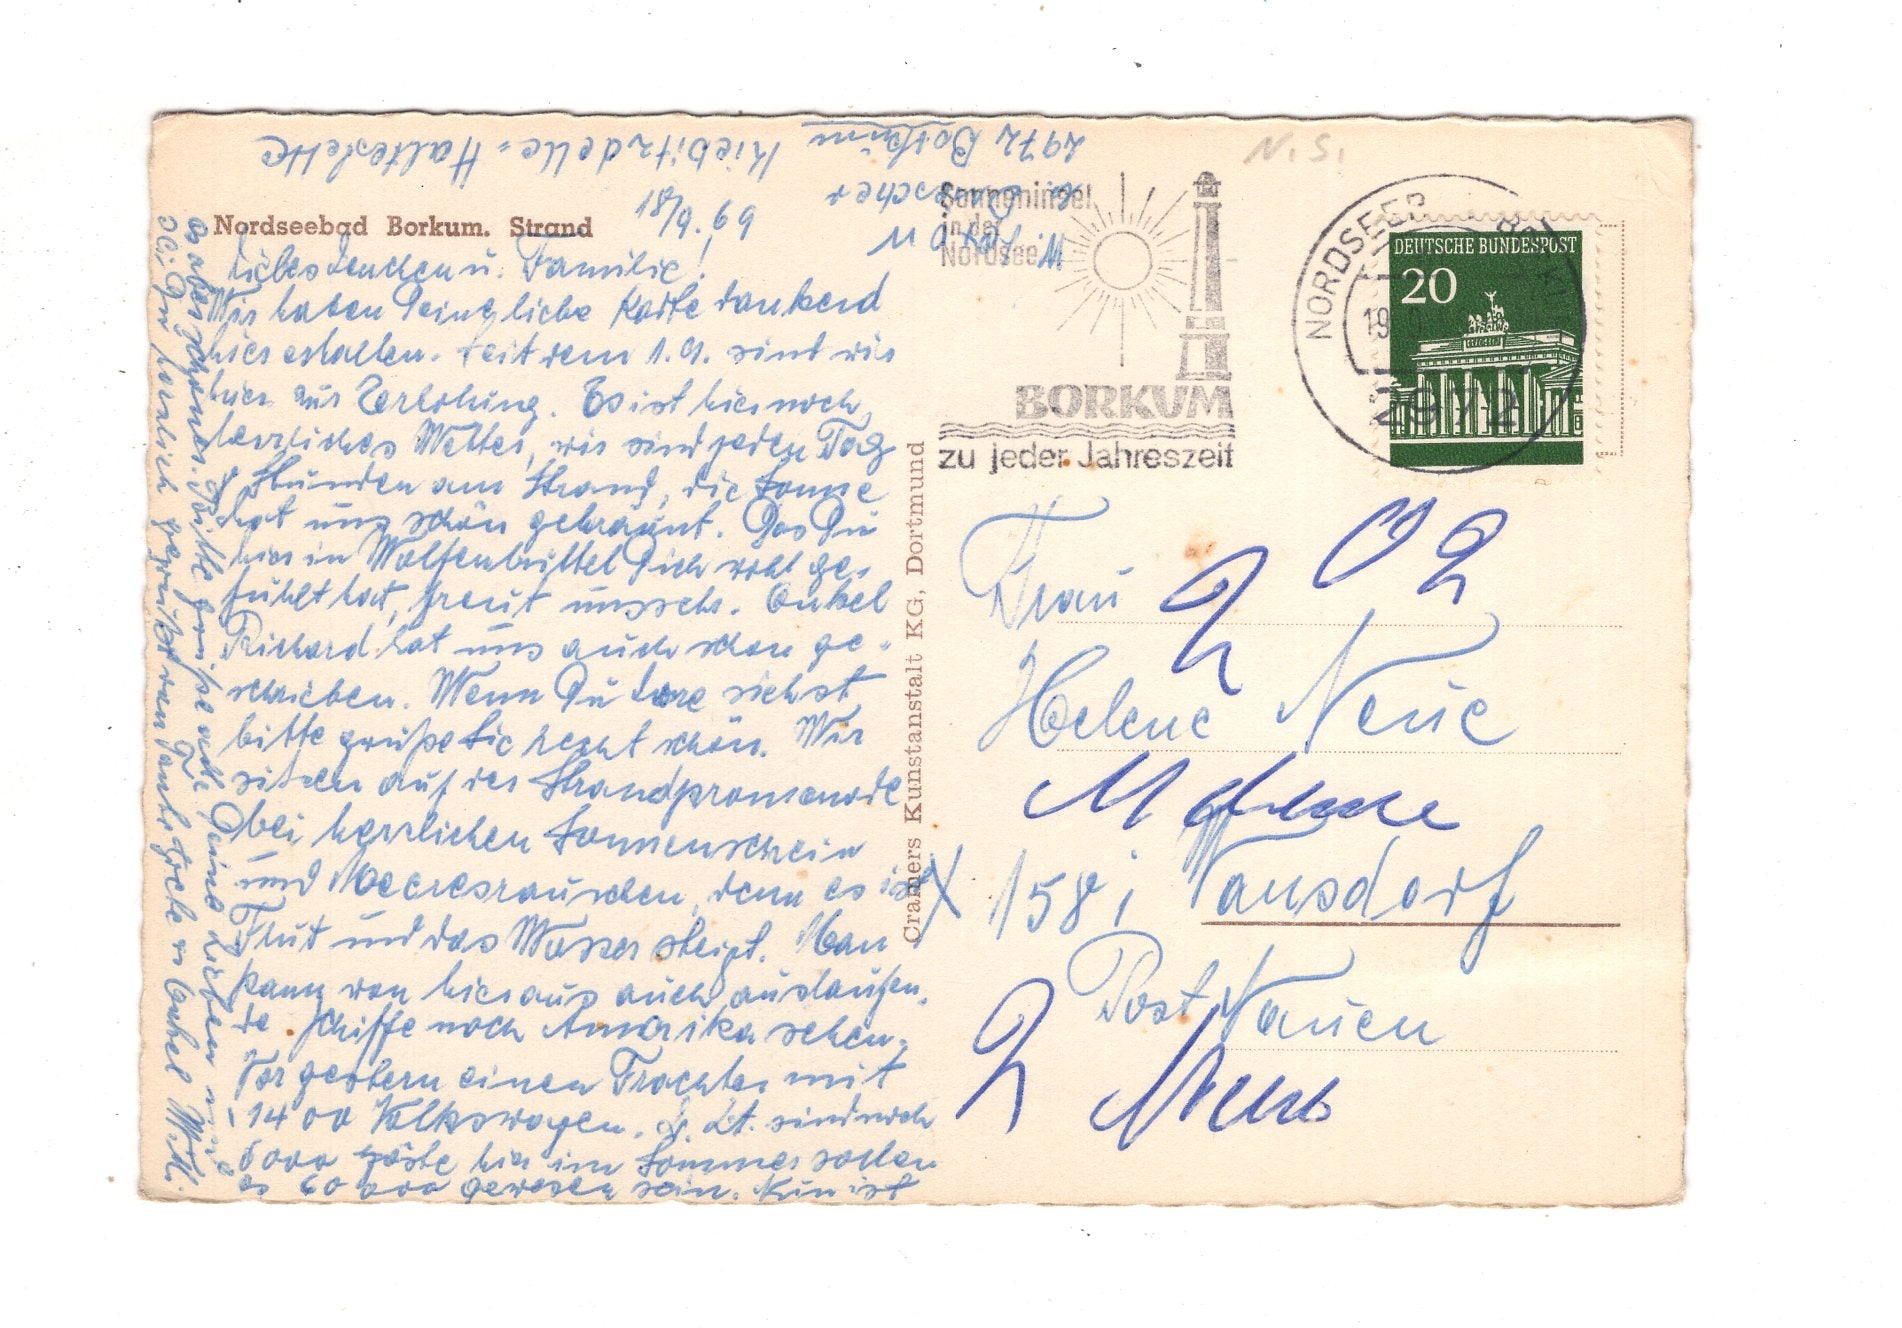 N. S.
2972 Borkum
Kiebitzdelle-Haltestelle
W.
18/9. 69
Nordseebad Borkum. Strand
Sonneninsel
in der
Nordsee
BORKUM
zu jeder Jahreszeit
NORDSEEB
2972
DEUTSCHE BUNDESPOST
20
Liebes Lenchen u. Familie!
Wir haben Deine liebe Karte dankend
hier erhalten. Seit dem 1.9. sind wir
hier zur Erholung. Es ist hier noch
herrliches Wetter, wir sind jeden Tag
Stunden am Strand, die Sonne
hat uns schön gebräunt. Das Du
hier in Wolfenbüttel Dich wohl ge-
fühlt hat, freut uns sehr. Onkel
Richard hat uns auch schon ge-
schrieben. Wenn Du Lore siehst
bitte grüße Sie recht schön. Wir
sitzen auf der Strandpromenade
bei herrlichen Sonnenschein
und Meeresrauschen, denn es ist
Flut und das Wasser steigt. Man
kann von hier aus auch auslaufen-
de Schiffe noch Amerika sehen.
Vorgestern einen Frachter mit
1400 Volkswagen. Z. Zt. sind noch
6000 Gäste hier im Sommer sollen
es 60 000 gewesen sein. Nun ist
es aber schluss. Bitte grüße auch Deine Lieben und
sei Du herzlich gegrüßt von Tante Grete u Onkel Willi
Cramers Kunstanstalt KG, Dortmund
Frau
Helene Neue
1581 Wansdorf
Post Nauen